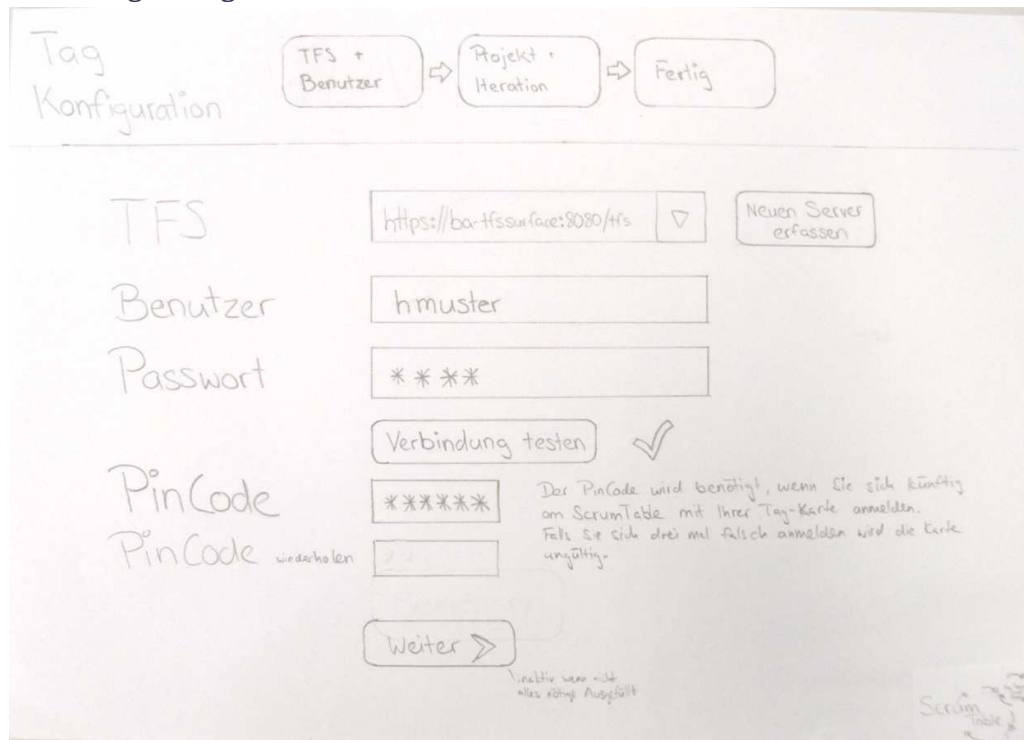 Tag
Konfiguration
TFS +
Benutzer
Projekt +
Iteration
Fertig
TFS
https://ba-tfssurface:8080/tfs
Neuen Server
erfassen
Benutzer
hmuster
Passwort
****
Verbindung testen
PinCode
******
Der PinCode wird benötigt, wenn Sie sich künftig
am ScrumTable mit Ihrer Tag-Karte anmelden.
Falls Sie sich drei mal falsch anmelden wird die Karte
ungültig.
PinCode wiederholen
Weiter
inaktiv wenn nicht
alles nötige Ausgefüllt
Scrum
Table